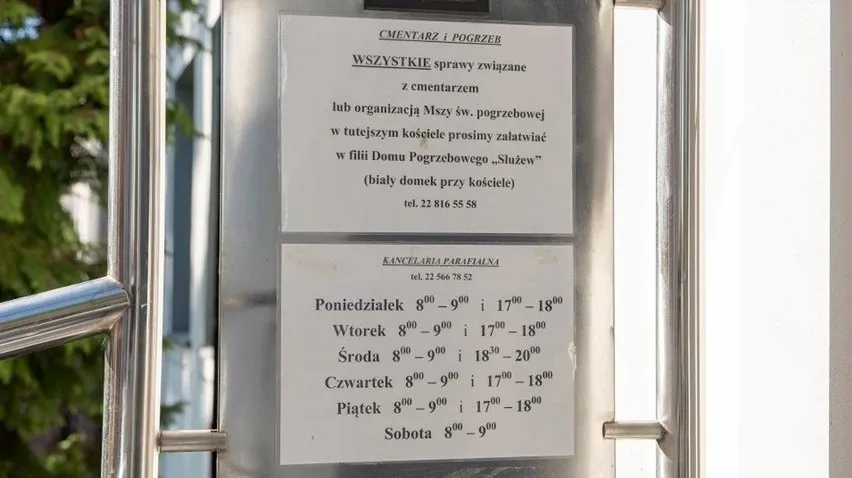 CMENTARZ i POGRZEB
WSZYSTKIE sprawy związane
z cmentarzem
lub organizacją Mszy św. pogrzebowej
w tutejszym kościele prosimy załatwiać
w filii Domu Pogrzebowego „Służew”
(biały domek przy kościele)
tel. 22 816 55 58
KANCELARIA PARAFIALNA
tel. 22 566 78 52
Poniedziałek 8⁰⁰ – 9⁰⁰ i 17⁰⁰ – 18⁰⁰
Wtorek 8⁰⁰ – 9⁰⁰ i 17⁰⁰ – 18⁰⁰
Środa 8⁰⁰ – 9⁰⁰ i 18³⁰ – 20⁰⁰
Czwartek 8⁰⁰ – 9⁰⁰ i 17⁰⁰ – 18⁰⁰
Piątek 8⁰⁰ – 9⁰⁰ i 17⁰⁰ – 18⁰⁰
Sobota 8⁰⁰ – 9⁰⁰